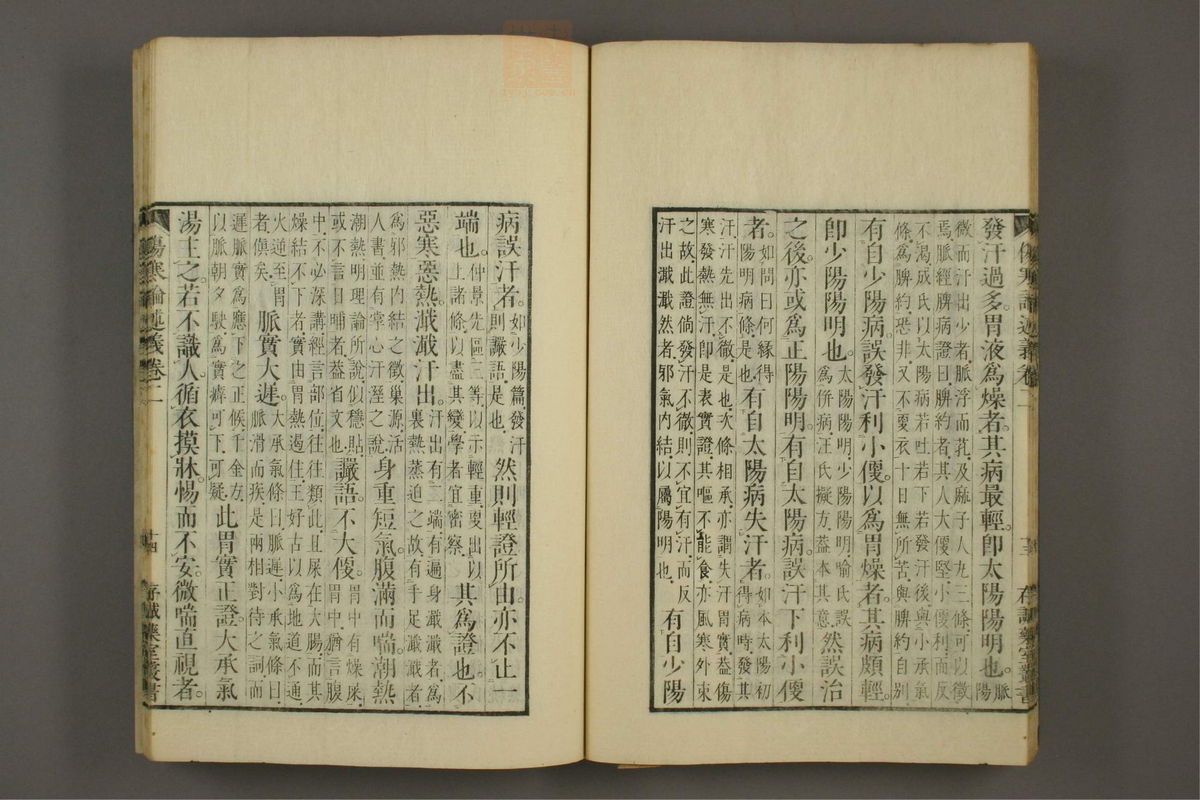 發汗過多。胃液爲燥者。其病最輕。卽太陽陽明也。脈陽
微而汗出少者、脈浮而芤、及麻子人丸三條、可以徵
焉、脈經脾病證曰、脾約者、其人大便堅、小便利、而反
不渴、成氏以太陽病若吐若下若發汗後、與小承氣
條爲脾約、恐非、又不更衣十日無所苦、與脾約自別
有自少陽病。誤發汗利小便。以爲胃燥者。其病頗輕。
卽少陽陽明也。太陽陽明、少陽陽明、喻氏誤
爲併病、汪氏擬方、葢本其意、然誤治
之後。亦或爲正陽陽明。有自太陽病。誤汗下利小便
者。如問曰、何緣得
陽明病條、是也、有自太陽病失汗者。如本太陽初
得病時、發其
汗、汗先出不徹、是也、次條相承、亦謂失汗胃實、葢傷
寒發熱無汗、卽是表實證、其嘔不能食、亦風寒外束
之故、此證倘發汗不徹、則不宜有汗、而反
汗出濈濈然者、邪氣內結、以屬陽明也、有自少陽
傷寒論述義卷二
存誠藥室叢書
病誤汗者。如少陽篇、發汗
則讝語、是也、然則輕證所由。亦不止一
端也。仲景先區三等、以示輕重、更出以
上諸條、以盡其變、學者宜密察、其爲證也。不
惡寒惡熱。濈濈汗出。汗出有二端、有遍身濈濈者、爲
裏熱蒸迫之故、有手足濈濈者、
爲邪熱內結之徵、巢源、活
人書、並有掌心汗溼之說、身重短氣。腹滿而喘。潮熱
潮熱、明理論所說似穩貼、
或不言日晡者、葢省文也、讝語。不大便。胃中有燥屎、
胃中、猶言腹
中、不必深講、經言部位、往往類此、且屎在大腸、而其
燥結不下者、實由胃熱遏住、王好古以爲地道不通、
火逆至胃
者、傎矣、脈實大遲。大承氣條曰、脈遲、小承氣條曰、
脈滑而疾、是兩相對待之詞、而
遲脈實爲應下之正候、千金方、
以脈朝夕駛、爲實癖可下、可疑、此胃實正證。大承氣
湯主之。若不識人。循衣摸牀。惕而不安。微喘直視者。
傷寒論述義卷二
十四
存誠藥室叢書